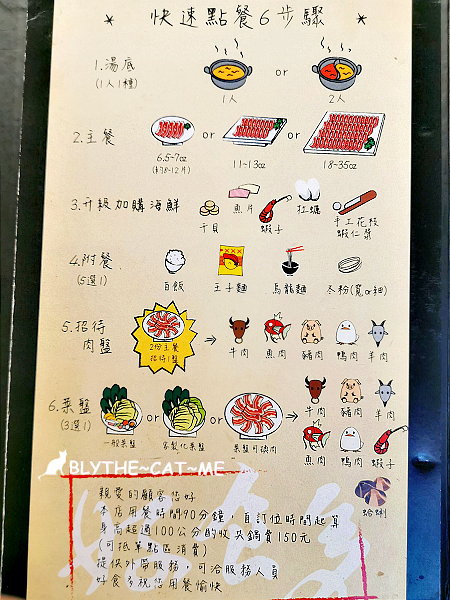 * 快速點餐6步驟 *
1.湯底
(1人1種)
1人 or 2人
2.主餐
or or
6.5~7oz
(約8~12片)
11~13oz
18~35oz
3.升級加購海鮮
干貝 魚片 蝦子 牡蠣 手工花枝
蝦仁漿
4.附餐
(5選1)
白飯 王子麵 烏龍麵 冬粉(寬or細)
5.招待
肉盤
2份主餐
招待1盤
牛肉 魚肉 豬肉 鴨肉 羊肉
6.菜盤
(3選1)
or or
一般菜盤 客製化菜盤 菜盤可換肉
牛肉 豬肉 羊肉
魚肉 鴨肉 蝦子
蛤蜊
BLYTHE~CAT~ME
親愛的顧客您好
本店用餐時間90分鐘,自訂位時間起算
身高超過100公分酌收共鍋費150元
(可抵單點區消費)
提供外帶服務,可洽服務人員
好食多祝您用餐愉快